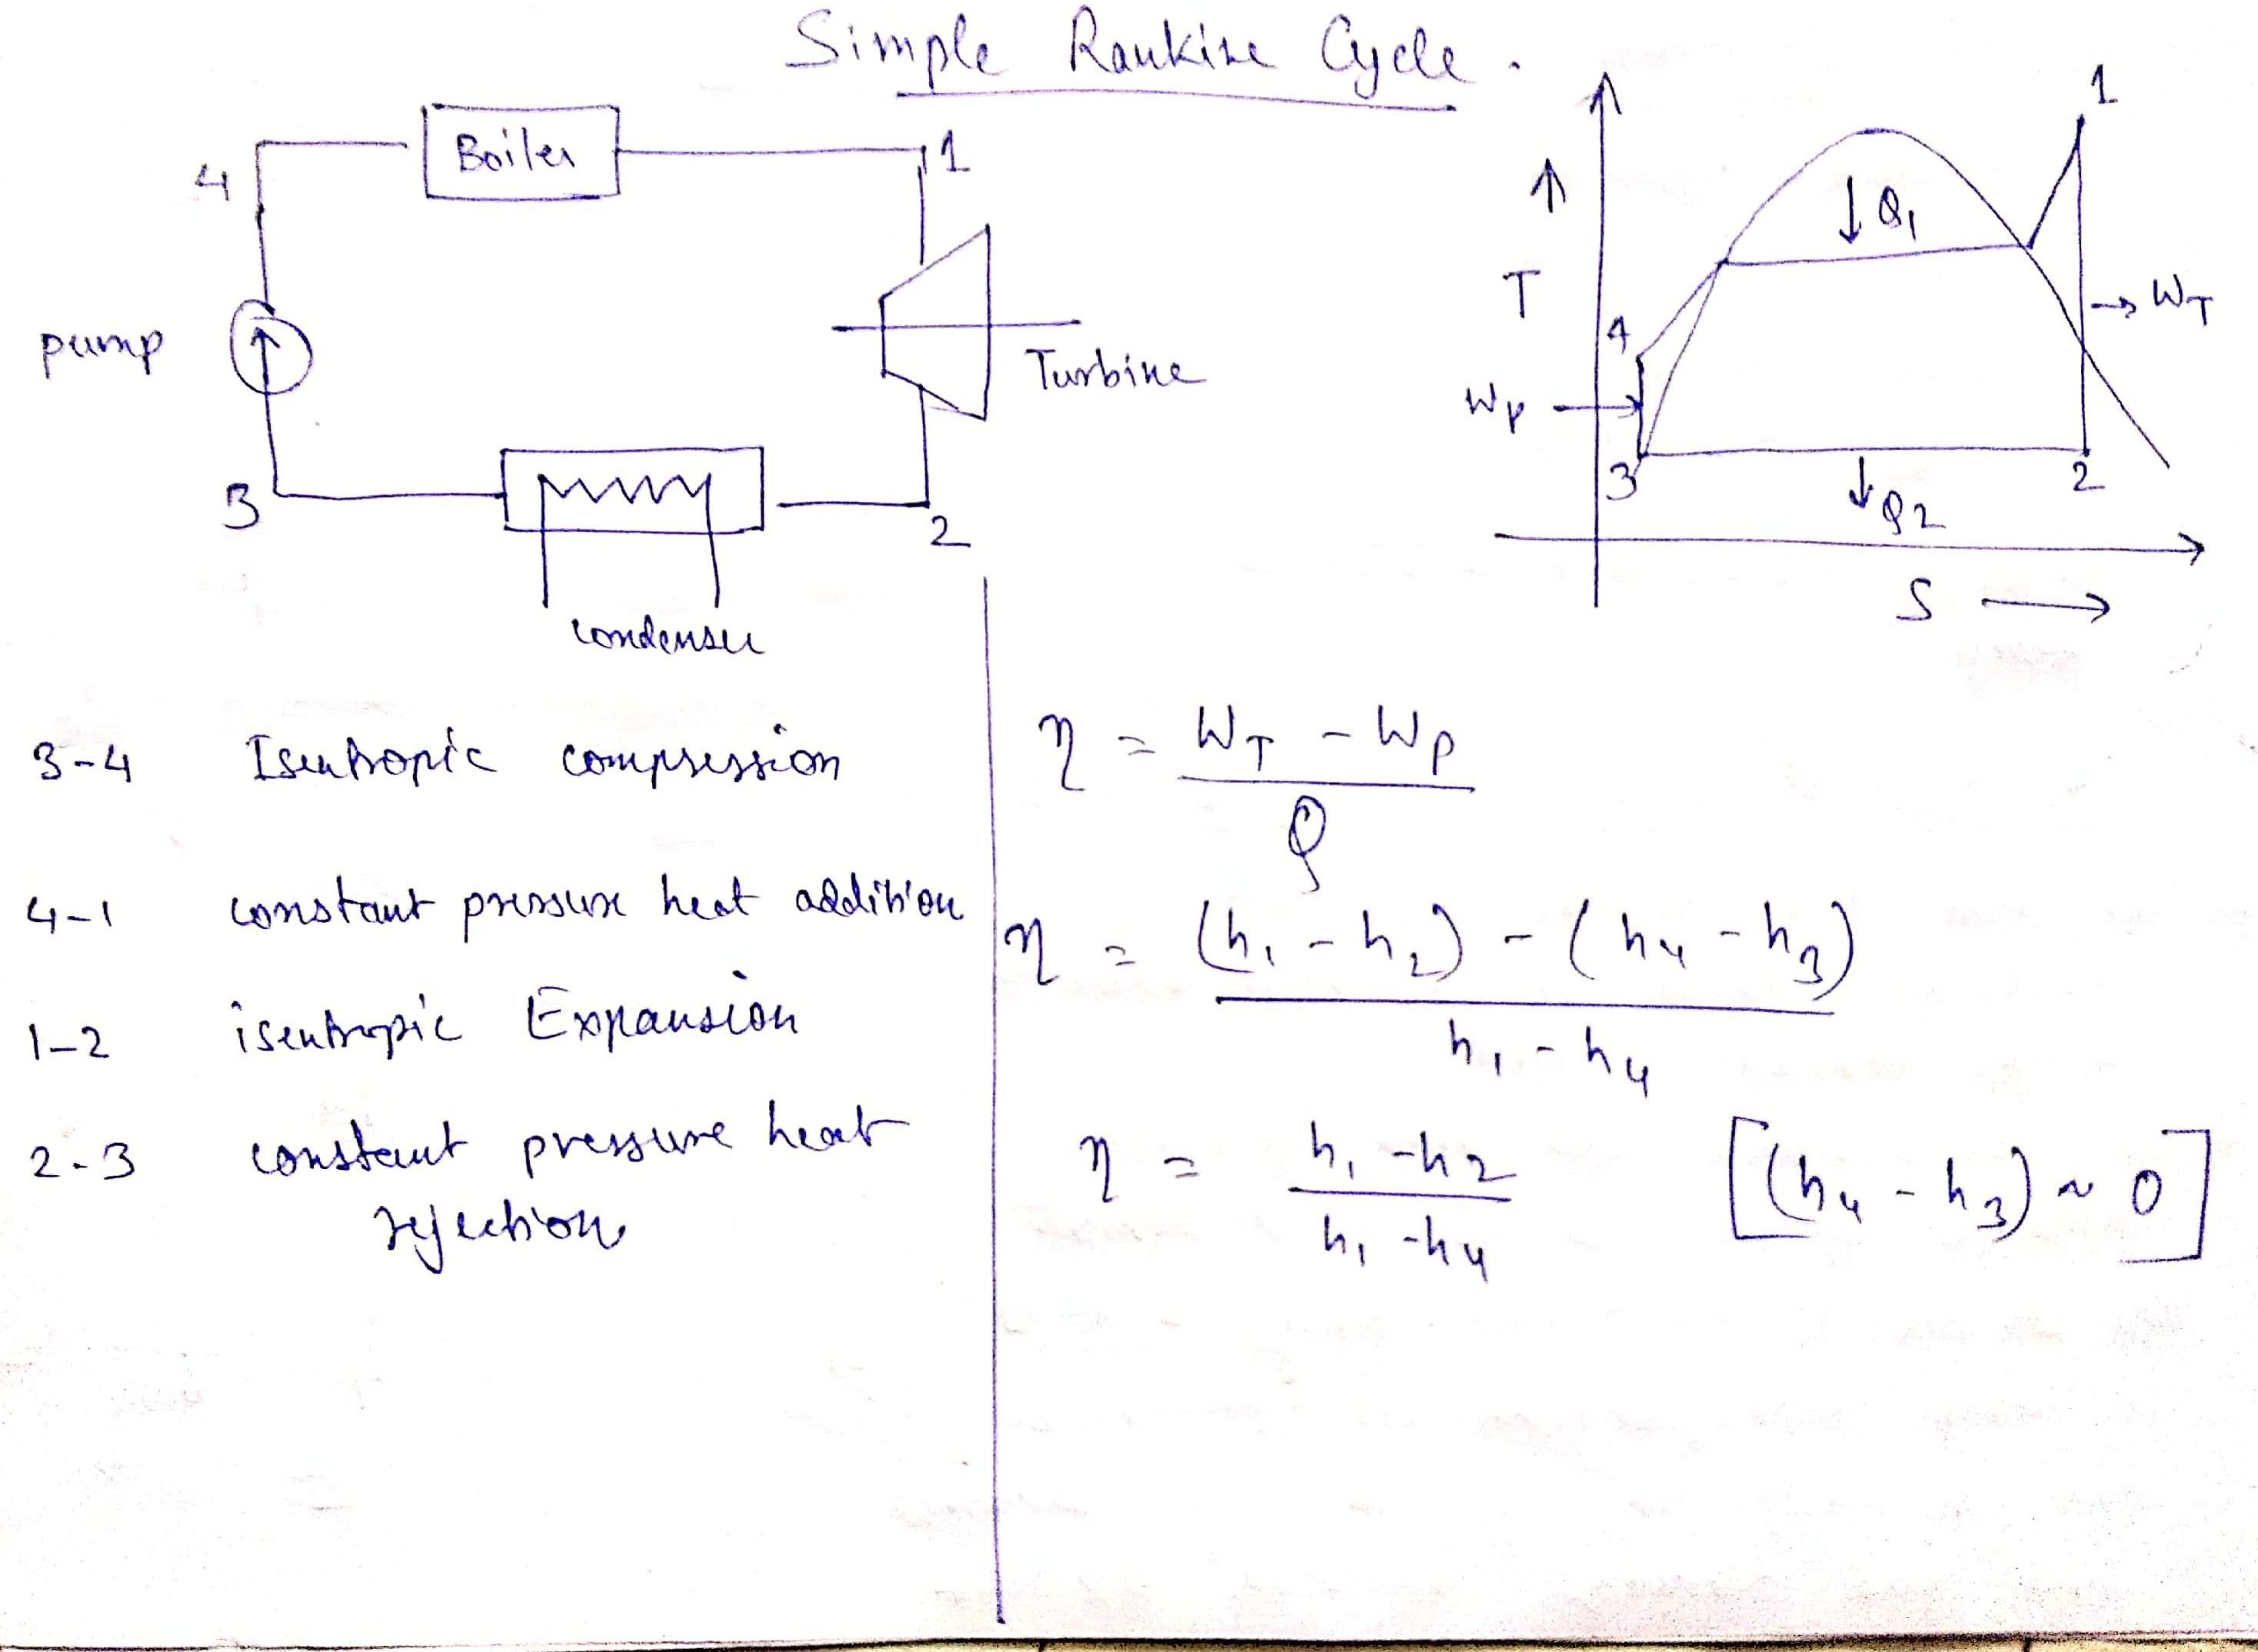 Simple Rankine Cycle.
Boiler
4
1
pump
Turbine
3
2
condenser
1
↑
↓ Q₁
T
→ W_T
4
W_P →
3
2
↓ Q2
S →
3-4 Isentropic compression
4-1 constant pressure heat addition
1-2 isentropic Expansion
2-3 constant pressure heat
rejection
η = W_T - W_P
Q
η = (h₁ - h₂) - (h₄ - h₃)
h₁ - h₄
η = h₁ - h2
h₁ - h₄
[(h₄ - h₃) ~ 0]